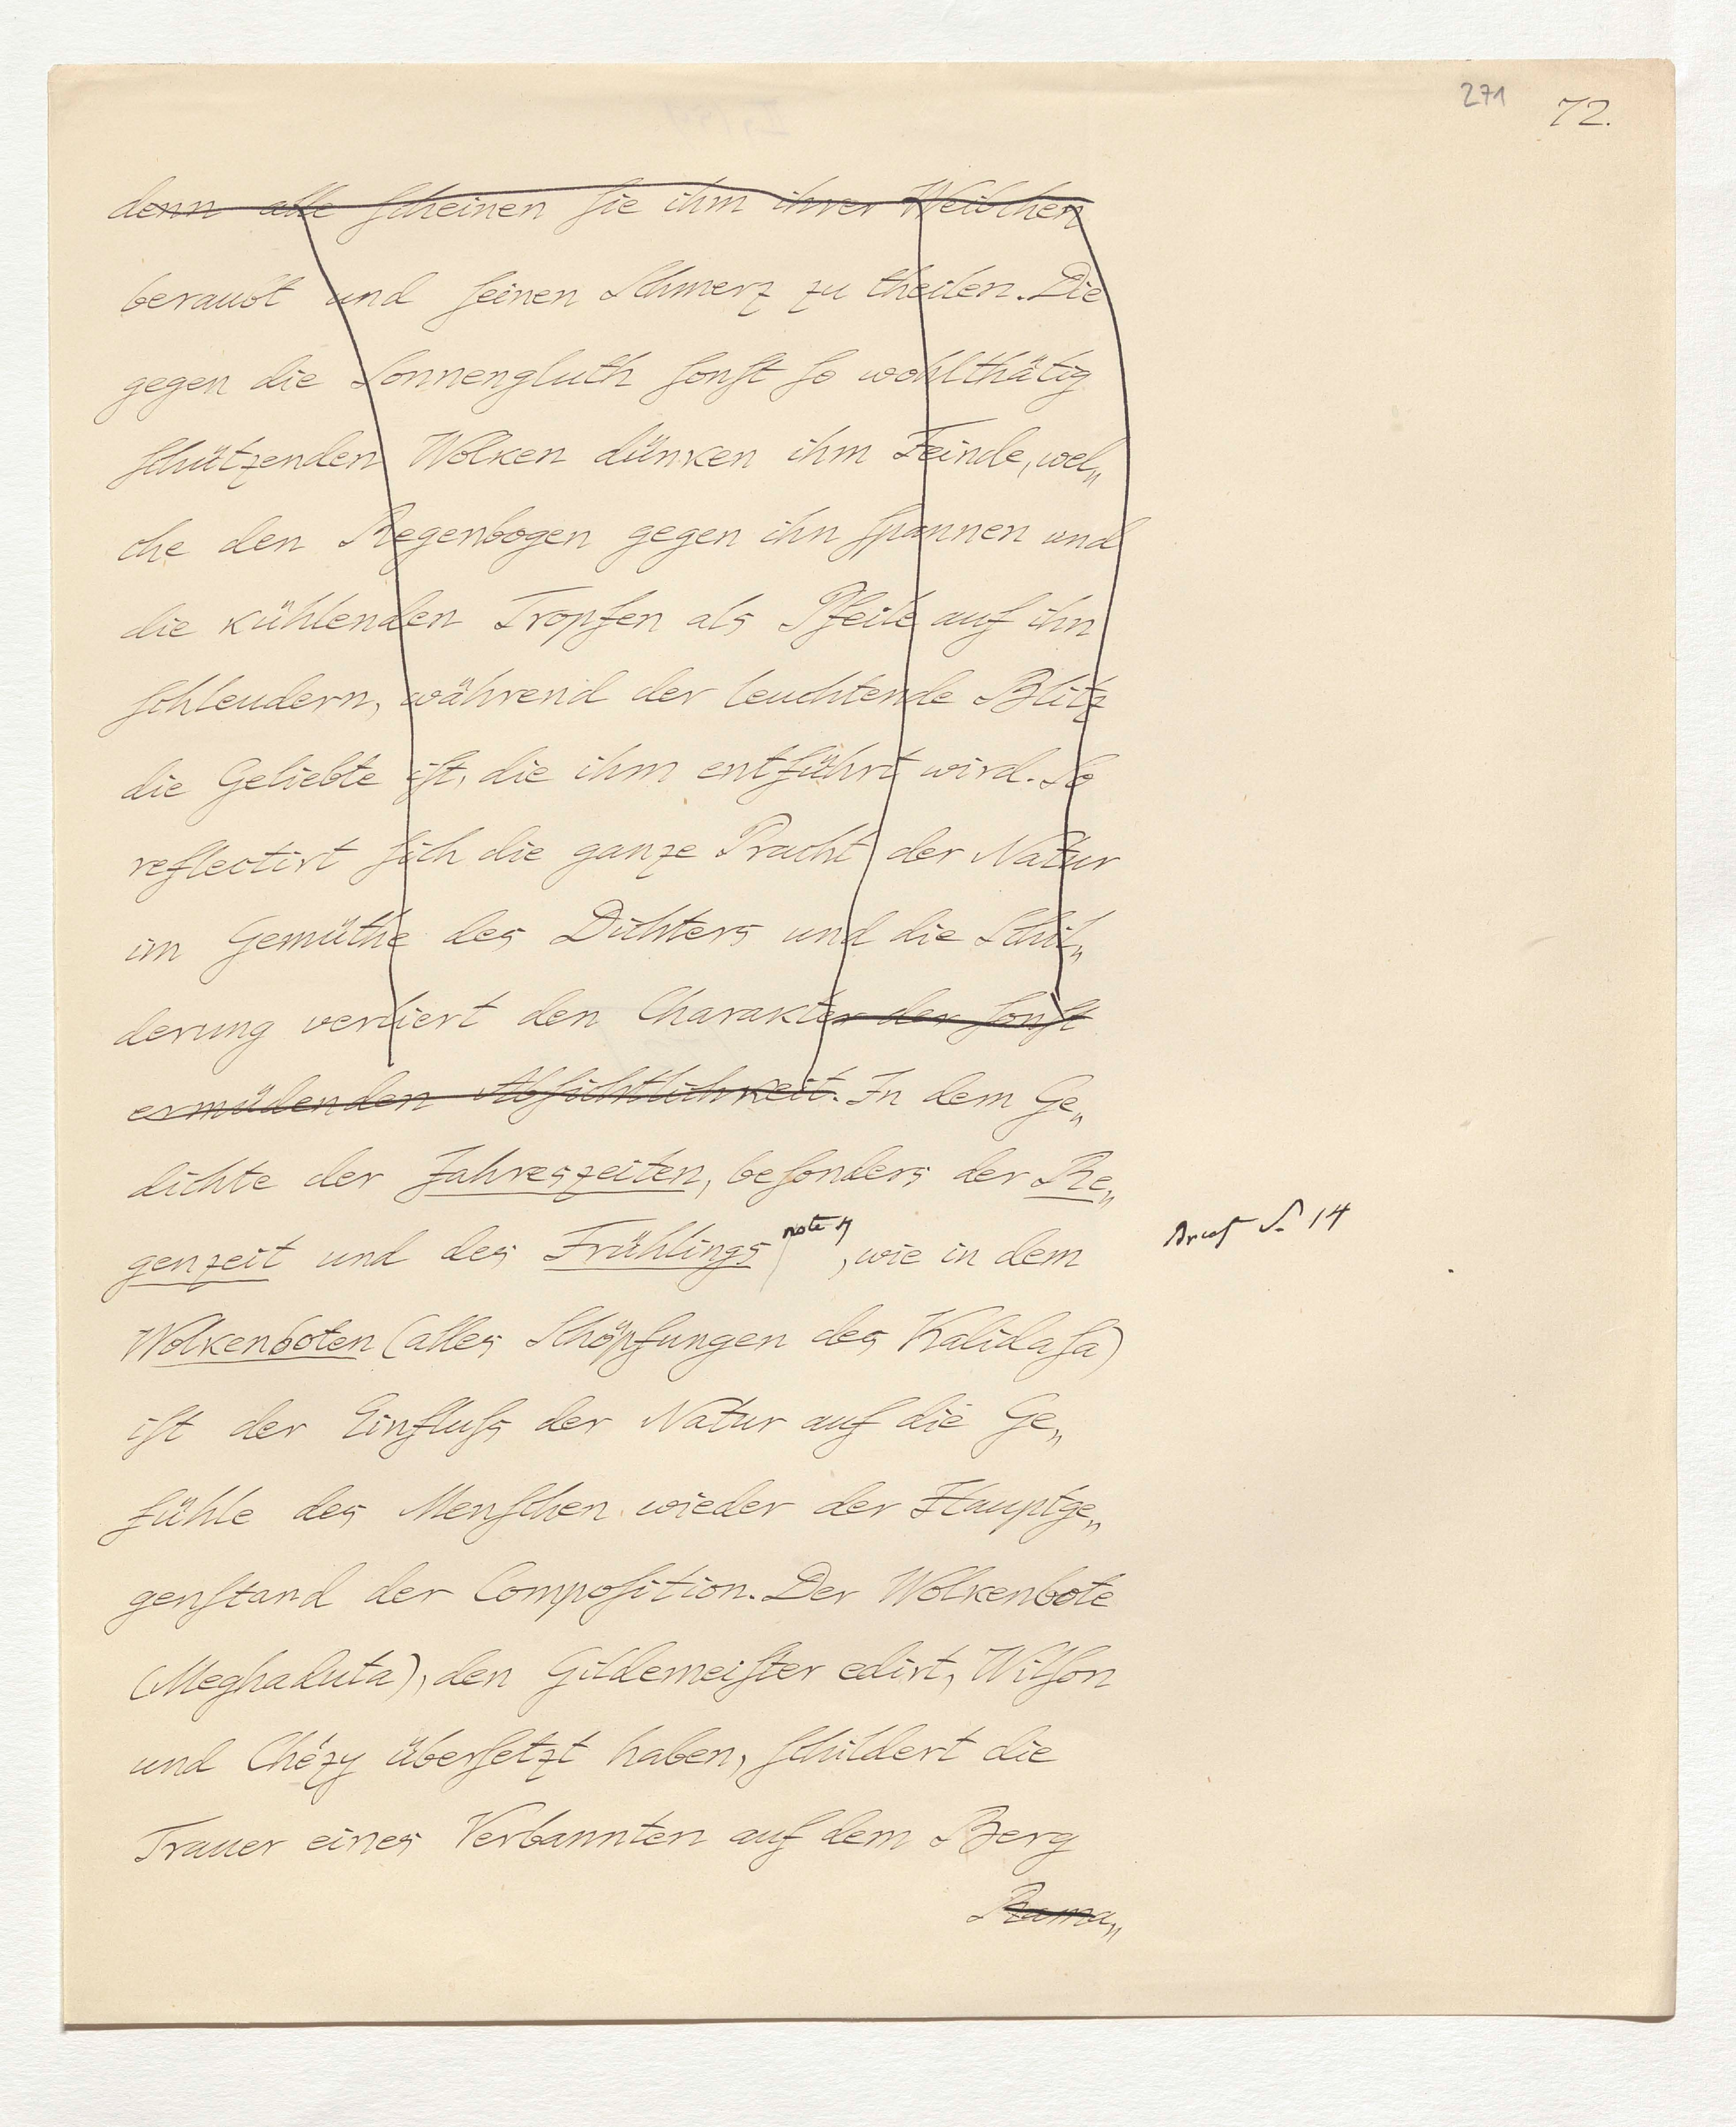 271
72.
denn alle scheinen sie ihm ihrer Weibchen
beraubt und seinen Schmerz zu theilen. Die
gegen die Sonnengluth sonst so wohlthätig
schützenden Wolken dünken ihm Feinde, wel„
che den Regenbogen gegen ihn spannen und
die kühlenden Tropfen als Pfeile auf ihn
schleudern, während der leuchtende Blitz
die Geliebte ist, die ihm entführt wird. So
reflectirt sich die ganze Pracht der Natur
im Gemüthe des Dichters und die Schil„
derung verliert den Charakter der sonst
ermüdenden Absichtlichkeit. In dem Ge„
dichte der Jahreszeiten, besonders der Re„
genzeit und des Frühlings note 4, wie in dem
S. 14
Wolkenboten (alles Schöpfungen des Kalidasa)
ist der Einfluss der Natur auf die Ge„
fühle des Menschen wieder der Hauptge„
genstand der Composition. Der Wolkenbote
(Meghaduta), den Gildemeister edirt, Wilson
und Chézy übersetzt haben, schildert die
Trauer eines Verbannten auf dem Berg
Rama„